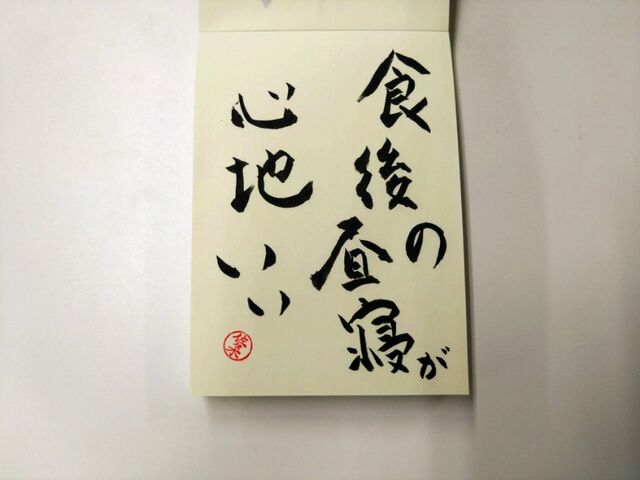 食後の昼寝が
心地いい